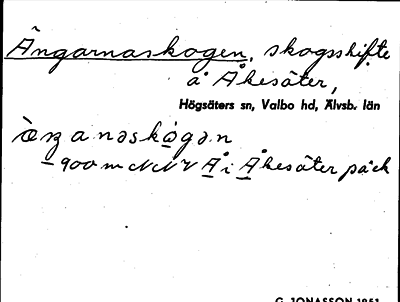 Ängarnaskogen, skogsskifte
å Åkesäter,
Högsäters sn, Valbo hd, Älvsb. län
900 m NNV Å i Åkesäter påck
G. JONASSON 1951